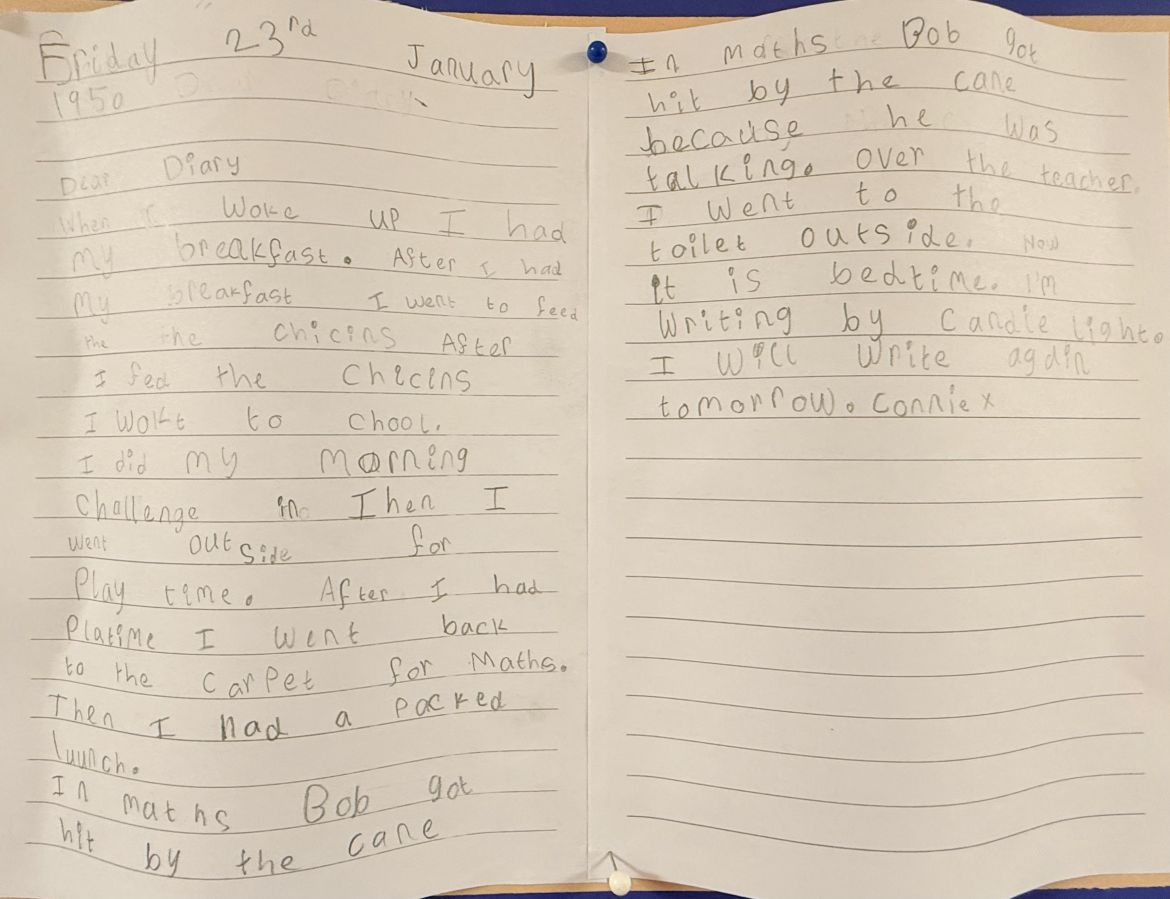 Friday 23rd January
1950
Dear Diary
When I woke up I had
my breakfast. After I had
my breakfast I went to feed
the the chicins After
I fed the chicins
I wolkt to chool.
I did my morning
challenge in Then I
went outside for
Play time. After I had
Platime I went back
to the carpet for Maths.
Then I had a packed
luunch.
In maths Bob got
hit by the cane
In maths Bob got
hit by the cane
because he was
talking. over the teacher.
I went to the
toilet outside. Now
It is bedtime. I'm
writing by candle light.
I will write again
tomorrow. Connie x